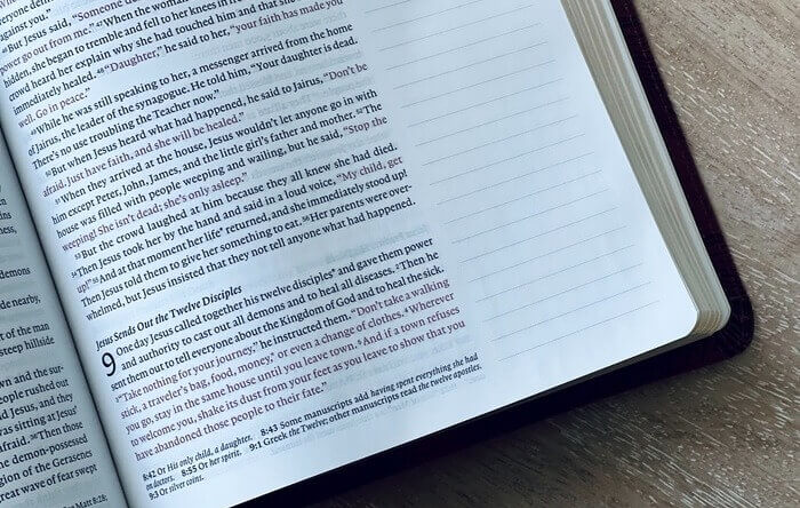 demons
de nearby,
t of the man
steep hillside
wn and the sur-
eople rushed out
d Jesus, and they
was sitting at Jesus'
afraid. ³⁶Then those
he demon-possessed
egion of the Gerasenes
great wave of fear swept
Matt 8:28;
against you."
⁴⁶But Jesus said, "Someone
power go out from me." ⁴⁷When the woman
hidden, she began to tremble and fell to her knees in
crowd heard her explain why she had touched him and that she
immediately healed. ⁴⁸"Daughter," he said to her, "your faith has made you
well. Go in peace."
⁴⁹While he was still speaking to her, a messenger arrived from the home
of Jairus, the leader of the synagogue. He told him, "Your daughter is dead.
There's no use troubling the Teacher now."
⁵⁰But when Jesus heard what had happened, he said to Jairus, "Don't be
afraid. Just have faith, and she will be healed."
⁵¹When they arrived at the house, Jesus wouldn't let anyone go in with
him except Peter, John, James, and the little girl's father and mother. ⁵²The
house was filled with people weeping and wailing, but he said, "Stop the
weeping! She isn't dead; she's only asleep."
⁵³But the crowd laughed at him because they all knew she had died.
⁵⁴Then Jesus took her by the hand and said in a loud voice, "My child, get
up!" ⁵⁵And at that moment her life* returned, and she immediately stood up!
Then Jesus told them to give her something to eat. ⁵⁶Her parents were over-
whelmed, but Jesus insisted that they not tell anyone what had happened.
Jesus Sends Out the Twelve Disciples
9 One day Jesus called together his twelve disciples* and gave them power
and authority to cast out all demons and to heal all diseases. ²Then he
sent them out to tell everyone about the Kingdom of God and to heal the sick.
³"Take nothing for your journey," he instructed them. "Don't take a walking
stick, a traveler's bag, food, money,* or even a change of clothes. ⁴Wherever
you go, stay in the same house until you leave town. ⁵And if a town refuses
to welcome you, shake its dust from your feet as you leave to show that you
have abandoned those people to their fate."
8:42 Or His only child, a daughter. 8:43 Some manuscripts add having spent everything she had
on doctors. 8:55 Or her spirit. 9:1 Greek the Twelve; other manuscripts read the twelve apostles.
9:3 Or silver coins.